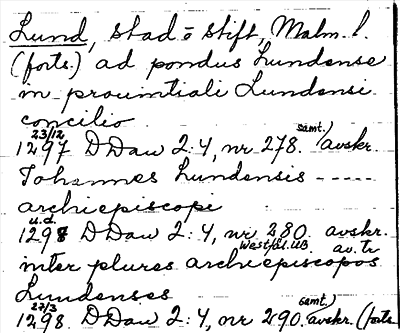 Lund, stad o stift, Malm. l.
(forts.) ad pondus Lundense
in prouintiali Lundensi
concilio
23/12 samt.)
1297 DDan 2:4, nr 278. avskr.
Johannes Lundensis -----
archiepiscopi
u.d.
1298 DDan 2:4, nr 280. avskr.
Westfäl. UB av. tr
inter plures archiepiscopos
Lundenses
27/3 samt.)
1298. DDan 2:4, nr 290. avskr. (forts.